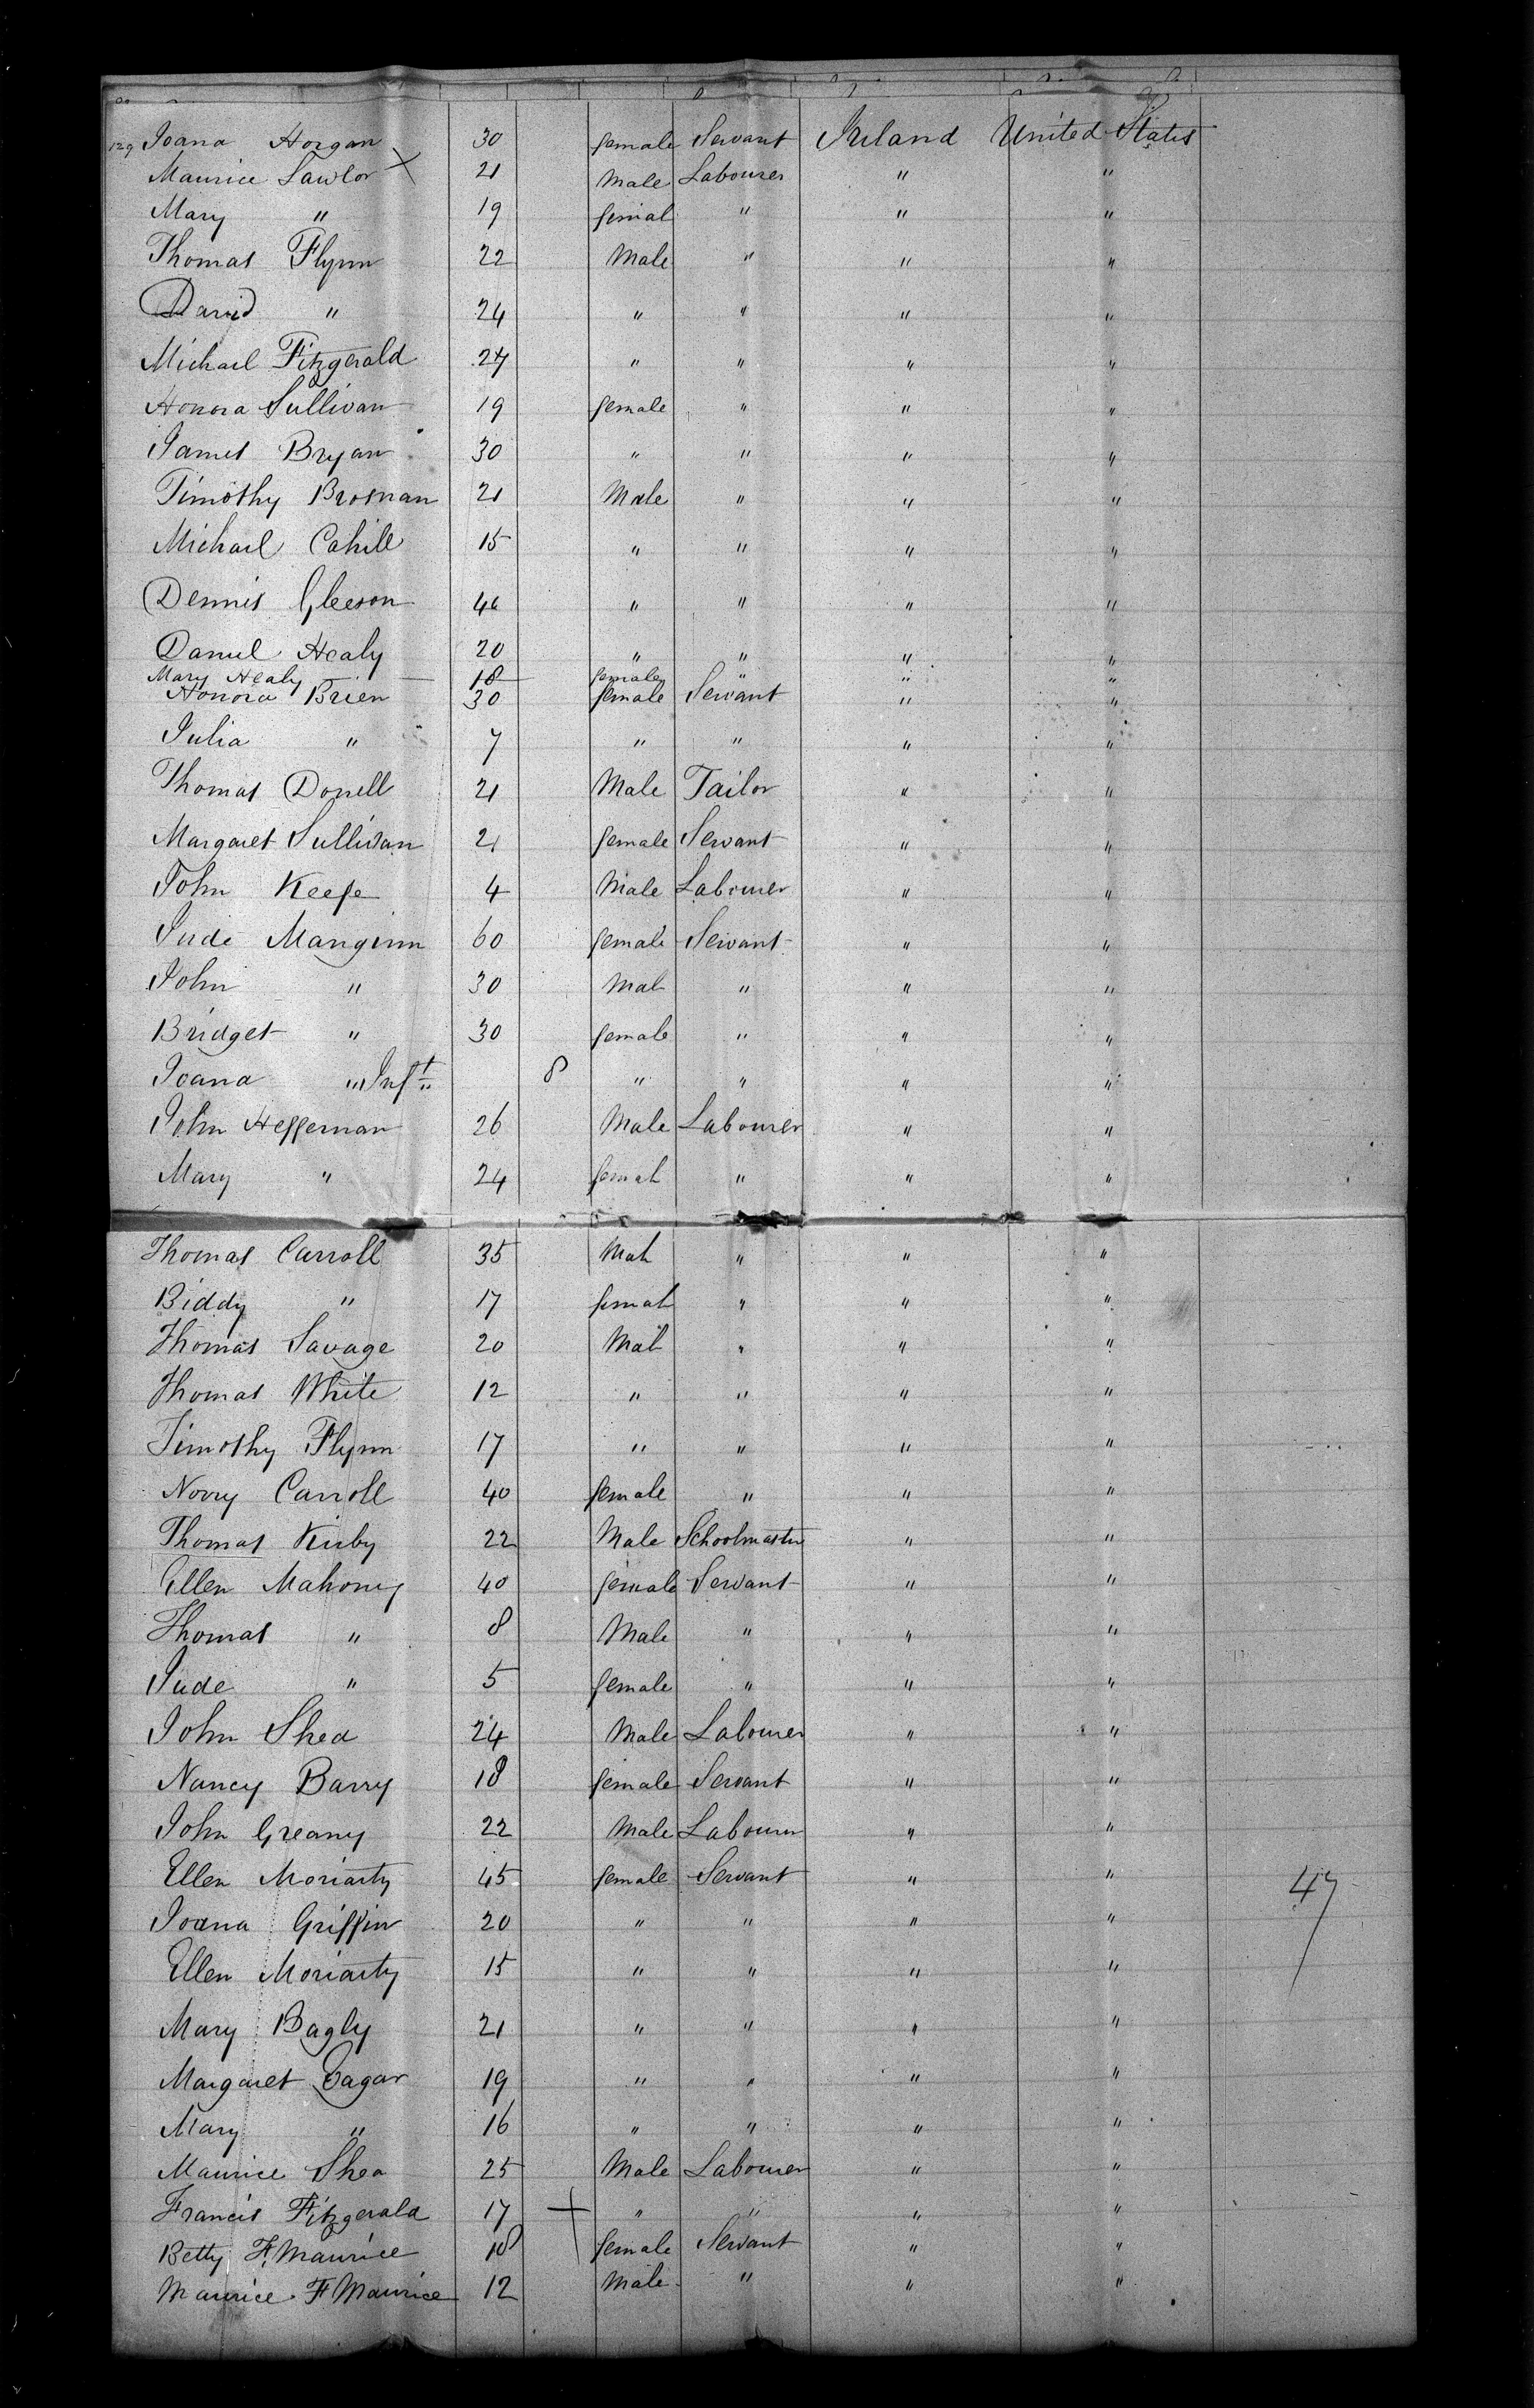 129 Joana Horgan 30 female Servant Ireland United States
Maurice Lawlor X 21 Male Labourer " "
Mary " 19 femal " " "
Thomas Flynn 22 Male " " "
David " 24 " " " "
Michael Fitzgerald 24 " " " "
Honora Sullivan 19 female " " "
James Bryan 30 " " " "
Timothy Brosnan 21 Male " " "
Michael Cahill 15 " " " "
Dennis Gleeson 40 " " " "
Daniel Healy 20 " " " "
Mary Healy 18 female " " "
Honora Brien 30 female Servant " "
Julia " 7 " " " "
Thomas Donell 21 Male Tailor " "
Margaret Sullivan 21 female Servant " "
John Keefe 4 Male Labourer " "
Jude Manginn 60 female Servant " "
John " 30 Male " " "
Bridget " 30 female " " "
Joana " Inft 8 " " " "
John Heffernan 26 Male Labourer " "
Mary " 24 female " " "
Thomas Carroll 35 Male " " "
Biddy " 17 female " " "
Thomas Savage 20 Male " " "
Thomas White 12 " " " "
Timothy Flynn 17 " " " "
Norry Carroll 40 female " " "
Thomas Kirby 22 Male Schoolmaster " "
Ellen Mahony 40 female Servant " "
Thomas " 8 Male " " "
Jude " 5 female " " "
John Shea 24 Male Labourer " "
Nancy Barry 18 female Servant " "
John Greany 22 Male Labourer " "
Ellen Moriarty 45 female Servant " " 47
Joana Griffin 20 " " " "
Ellen Moriarty 15 " " " "
Mary Bagly 21 " " " "
Margaret Eagar 19 " " " "
Mary " 16 " " " "
Maurice Shea 25 Male Labourer " "
Francis Fitzgerald 17 " " " "
Betty F. Maurice 18 female Servant " "
Maurice F Maurice 12 Male " " "